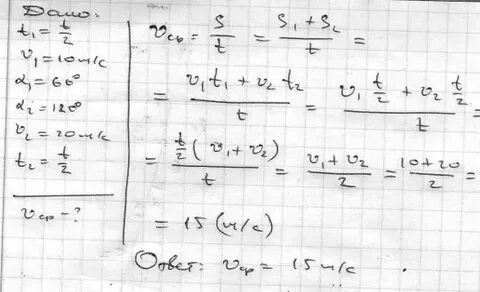 Дано:
t₁ = t/2
v₁ = 10 м/с
α₁ = 60°
α₂ = 120°
v₂ = 20 м/с
t₂ = t/2
vср - ?
vср = S/t = (S₁ + S₂)/t =
= (v₁t₁ + v₂t₂)/t = (v₁ t/2 + v₂ t/2)/t =
= (t/2 (v₁ + v₂))/t = (v₁ + v₂)/2 = (10 + 20)/2 =
= 15 (м/с)
Ответ: vср = 15 м/с.